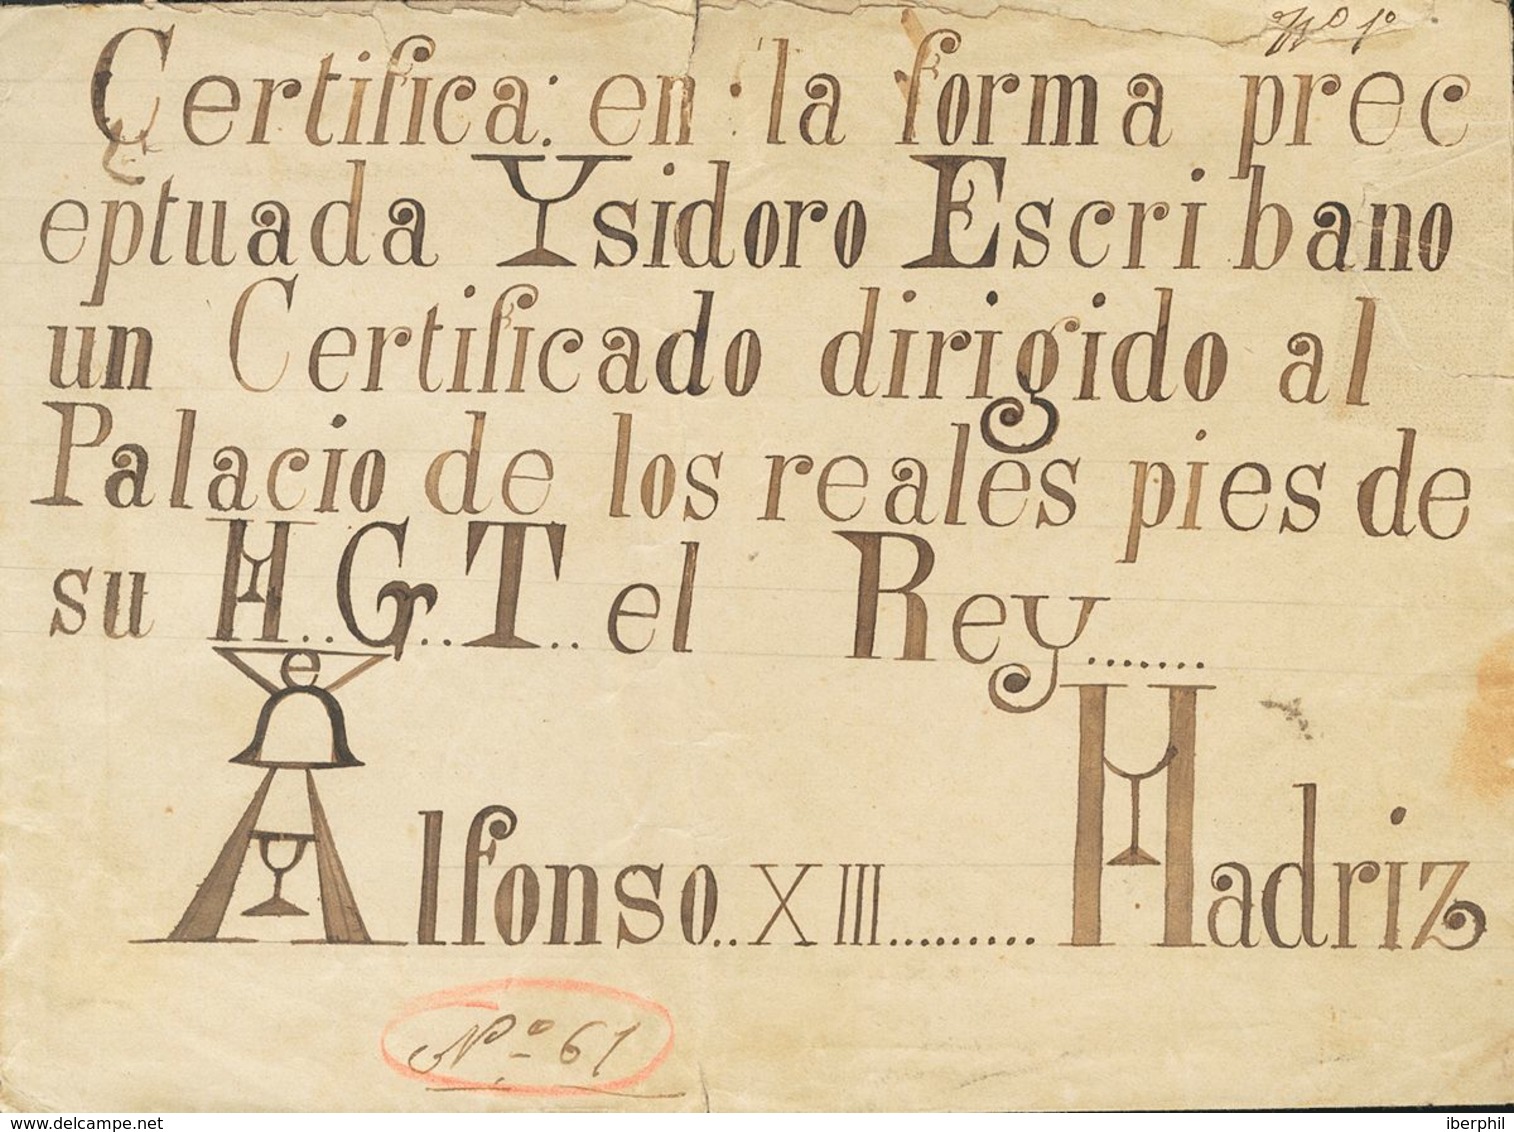 Nº 1º
Certifica: en la forma prec
eptuada Ysidoro Escribano
un Certificado dirigido al
Palacio de los reales pies de
su M..G..T.. el Rey.......
Alfonso..XIII......... Madriz
Nº 61
www.delcampe.net
iberphil